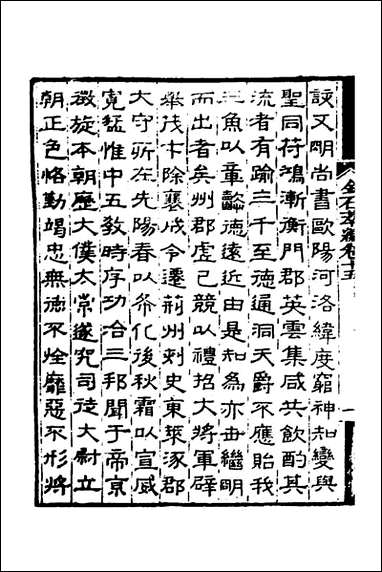 金石萃編卷十五
一
該又明尚書歐陽河洛緯度窮神知變與
聖同符鴻漸衡門郡英雲集咸共飲酌其
流者有踰三千至德通洞天爵不應貽我
三魚以章懿德遠近由是知為亦世繼明
而出者矣州郡虛己競以禮招大將軍辟
舉茂才除襄成令遷荊州刺史東萊涿郡
大守所在先陽春以布化後秋霜以宣威
寬猛惟中五教時序功洽三邦聞于帝京
徵旋本朝歷大僕太常遂究司徒大尉立
朝正色恪勤竭忠無德不旌靡惡不形將